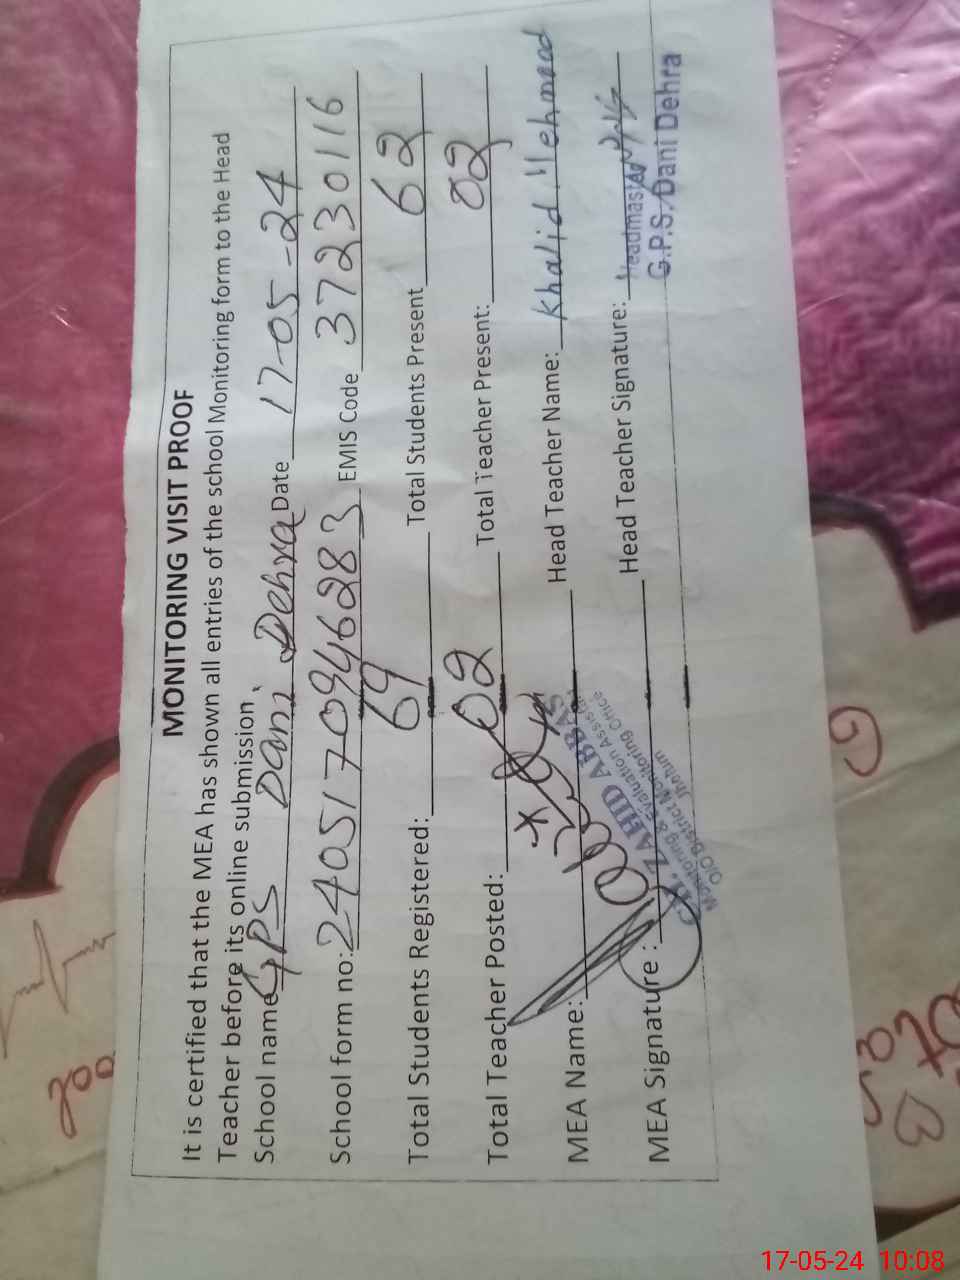 MONITORING VISIT PROOF
It is certified that the MEA has shown all entries of the school Monitoring form to the Head
Teacher before its online submission.
School name GPS Dani Dehra Date 17-05-24
School form no: 240517094628 3 EMIS Code 37230116
Total Students Registered: 69 Total Students Present 62
Total Teacher Posted: 02 Total Teacher Present: 02
MEA Name: Head Teacher Name: Khalid Mehmood
MEA Signature : Head Teacher Signature:
CH. ZAHID ABBAS
Monitoring & Evaluation Assistant
O/O District Monitoring Office
Jhelum
Headmaster
G.P.S. Dani Dehra
17-05-24 10:08